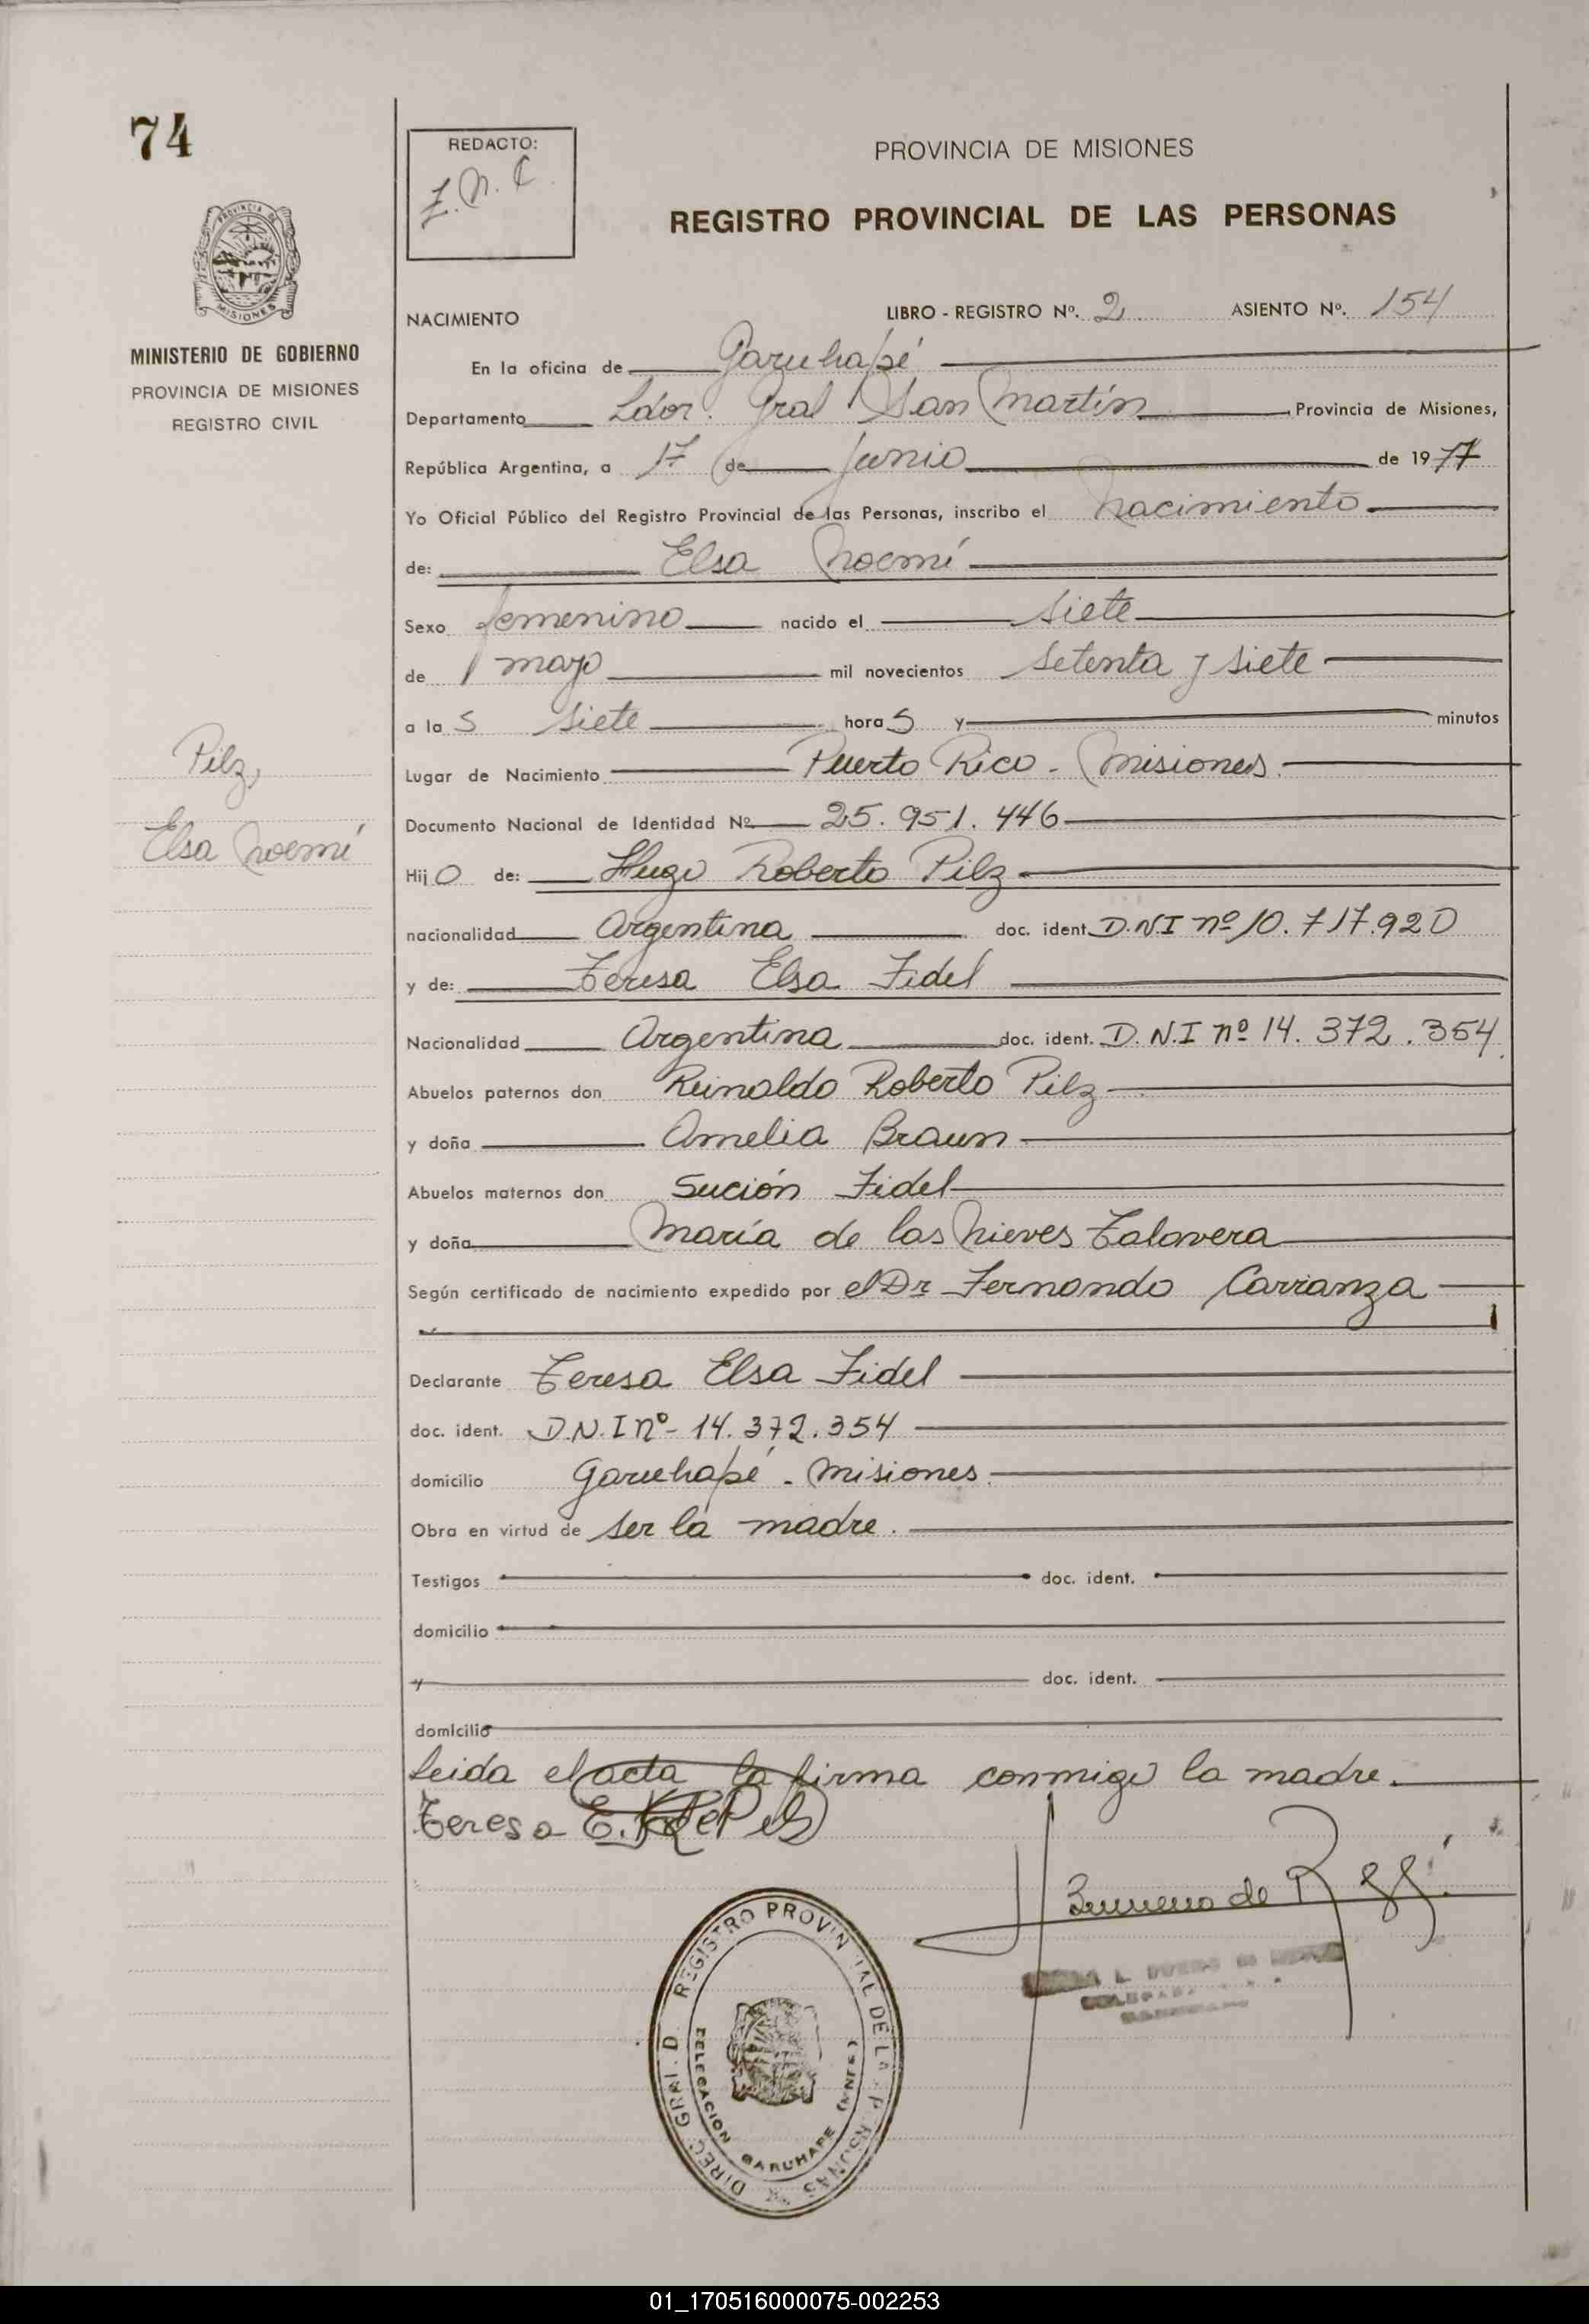 74
REDACTO:
PROVINCIA DE MISIONES
REGISTRO PROVINCIAL DE LAS PERSONAS
MISIONES
MINISTERIO DE GOBIERNO
PROVINCIA DE MISIONES
REGISTRO CIVIL
NACIMIENTO LIBRO - REGISTRO Nº. 2 ASIENTO Nº. 154
En la oficina de Garuhapé
Departamento Ldor. Gral San Martín Provincia de Misiones,
República Argentina, a 17 de junio de 1977
Yo Oficial Público del Registro Provincial de las Personas, inscribo el nacimiento
de: Elsa Noemí
Sexo femenino nacido el siete
de mayo mil novecientos setenta y siete
a las siete horas y minutos
Lugar de Nacimiento Puerto Rico - Misiones.
Pilz,
Elsa Noemí
Documento Nacional de Identidad Nº 25.951.446
Hijo de: Hugo Roberto Pilz
nacionalidad Argentina doc. ident. D.NI nº 10.717.920
y de: Teresa Elsa Fidel
Nacionalidad Argentina doc. ident. D.N.I nº 14.372.354
Abuelos paternos don Reinaldo Roberto Pilz
y doña Amelia Braun
Abuelos maternos don Sución Fidel
y doña María de las Nieves Talavera
Según certificado de nacimiento expedido por el Dr Fernando Carranza
Declarante Teresa Elsa Fidel
doc. ident. D.N.I nº- 14.372.354
domicilio Garuhapé - Misiones.
Obra en virtud de ser la madre.
Testigos doc. ident.
domicilio
y doc. ident.
domicilio
Leida el acta la firma conmigo la madre.
Teresa E.
de
DIREC. GRAL D REGISTRO PROVIN IAL DE LA P RSONAS
DELEGACION GARUHAPE (MNES.)
01_170516000075-002253